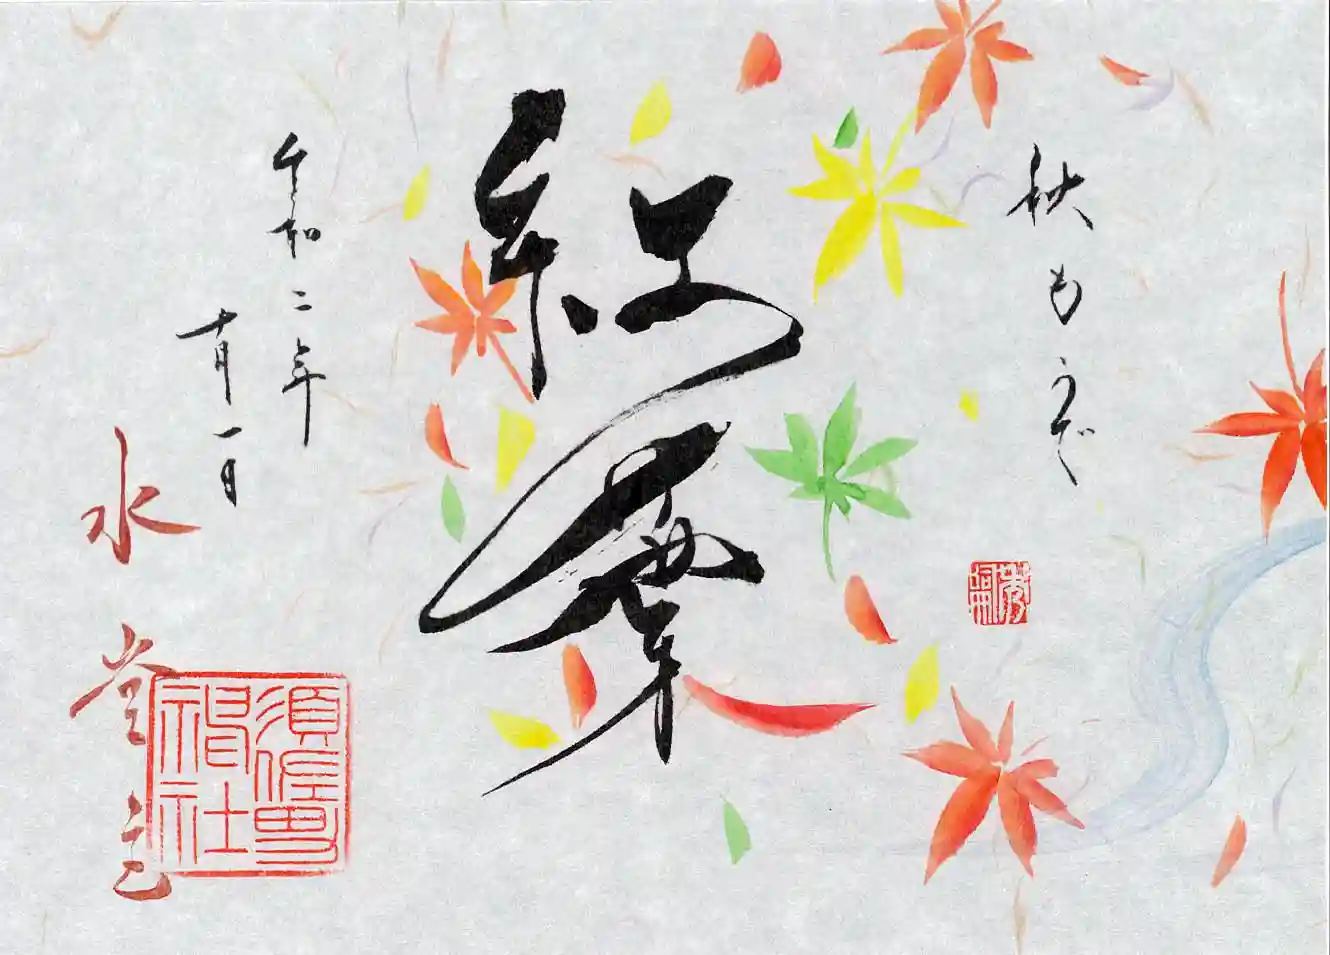 秋もうで
紅葉
令和二年
十月一日
水堂
須佐男
神社